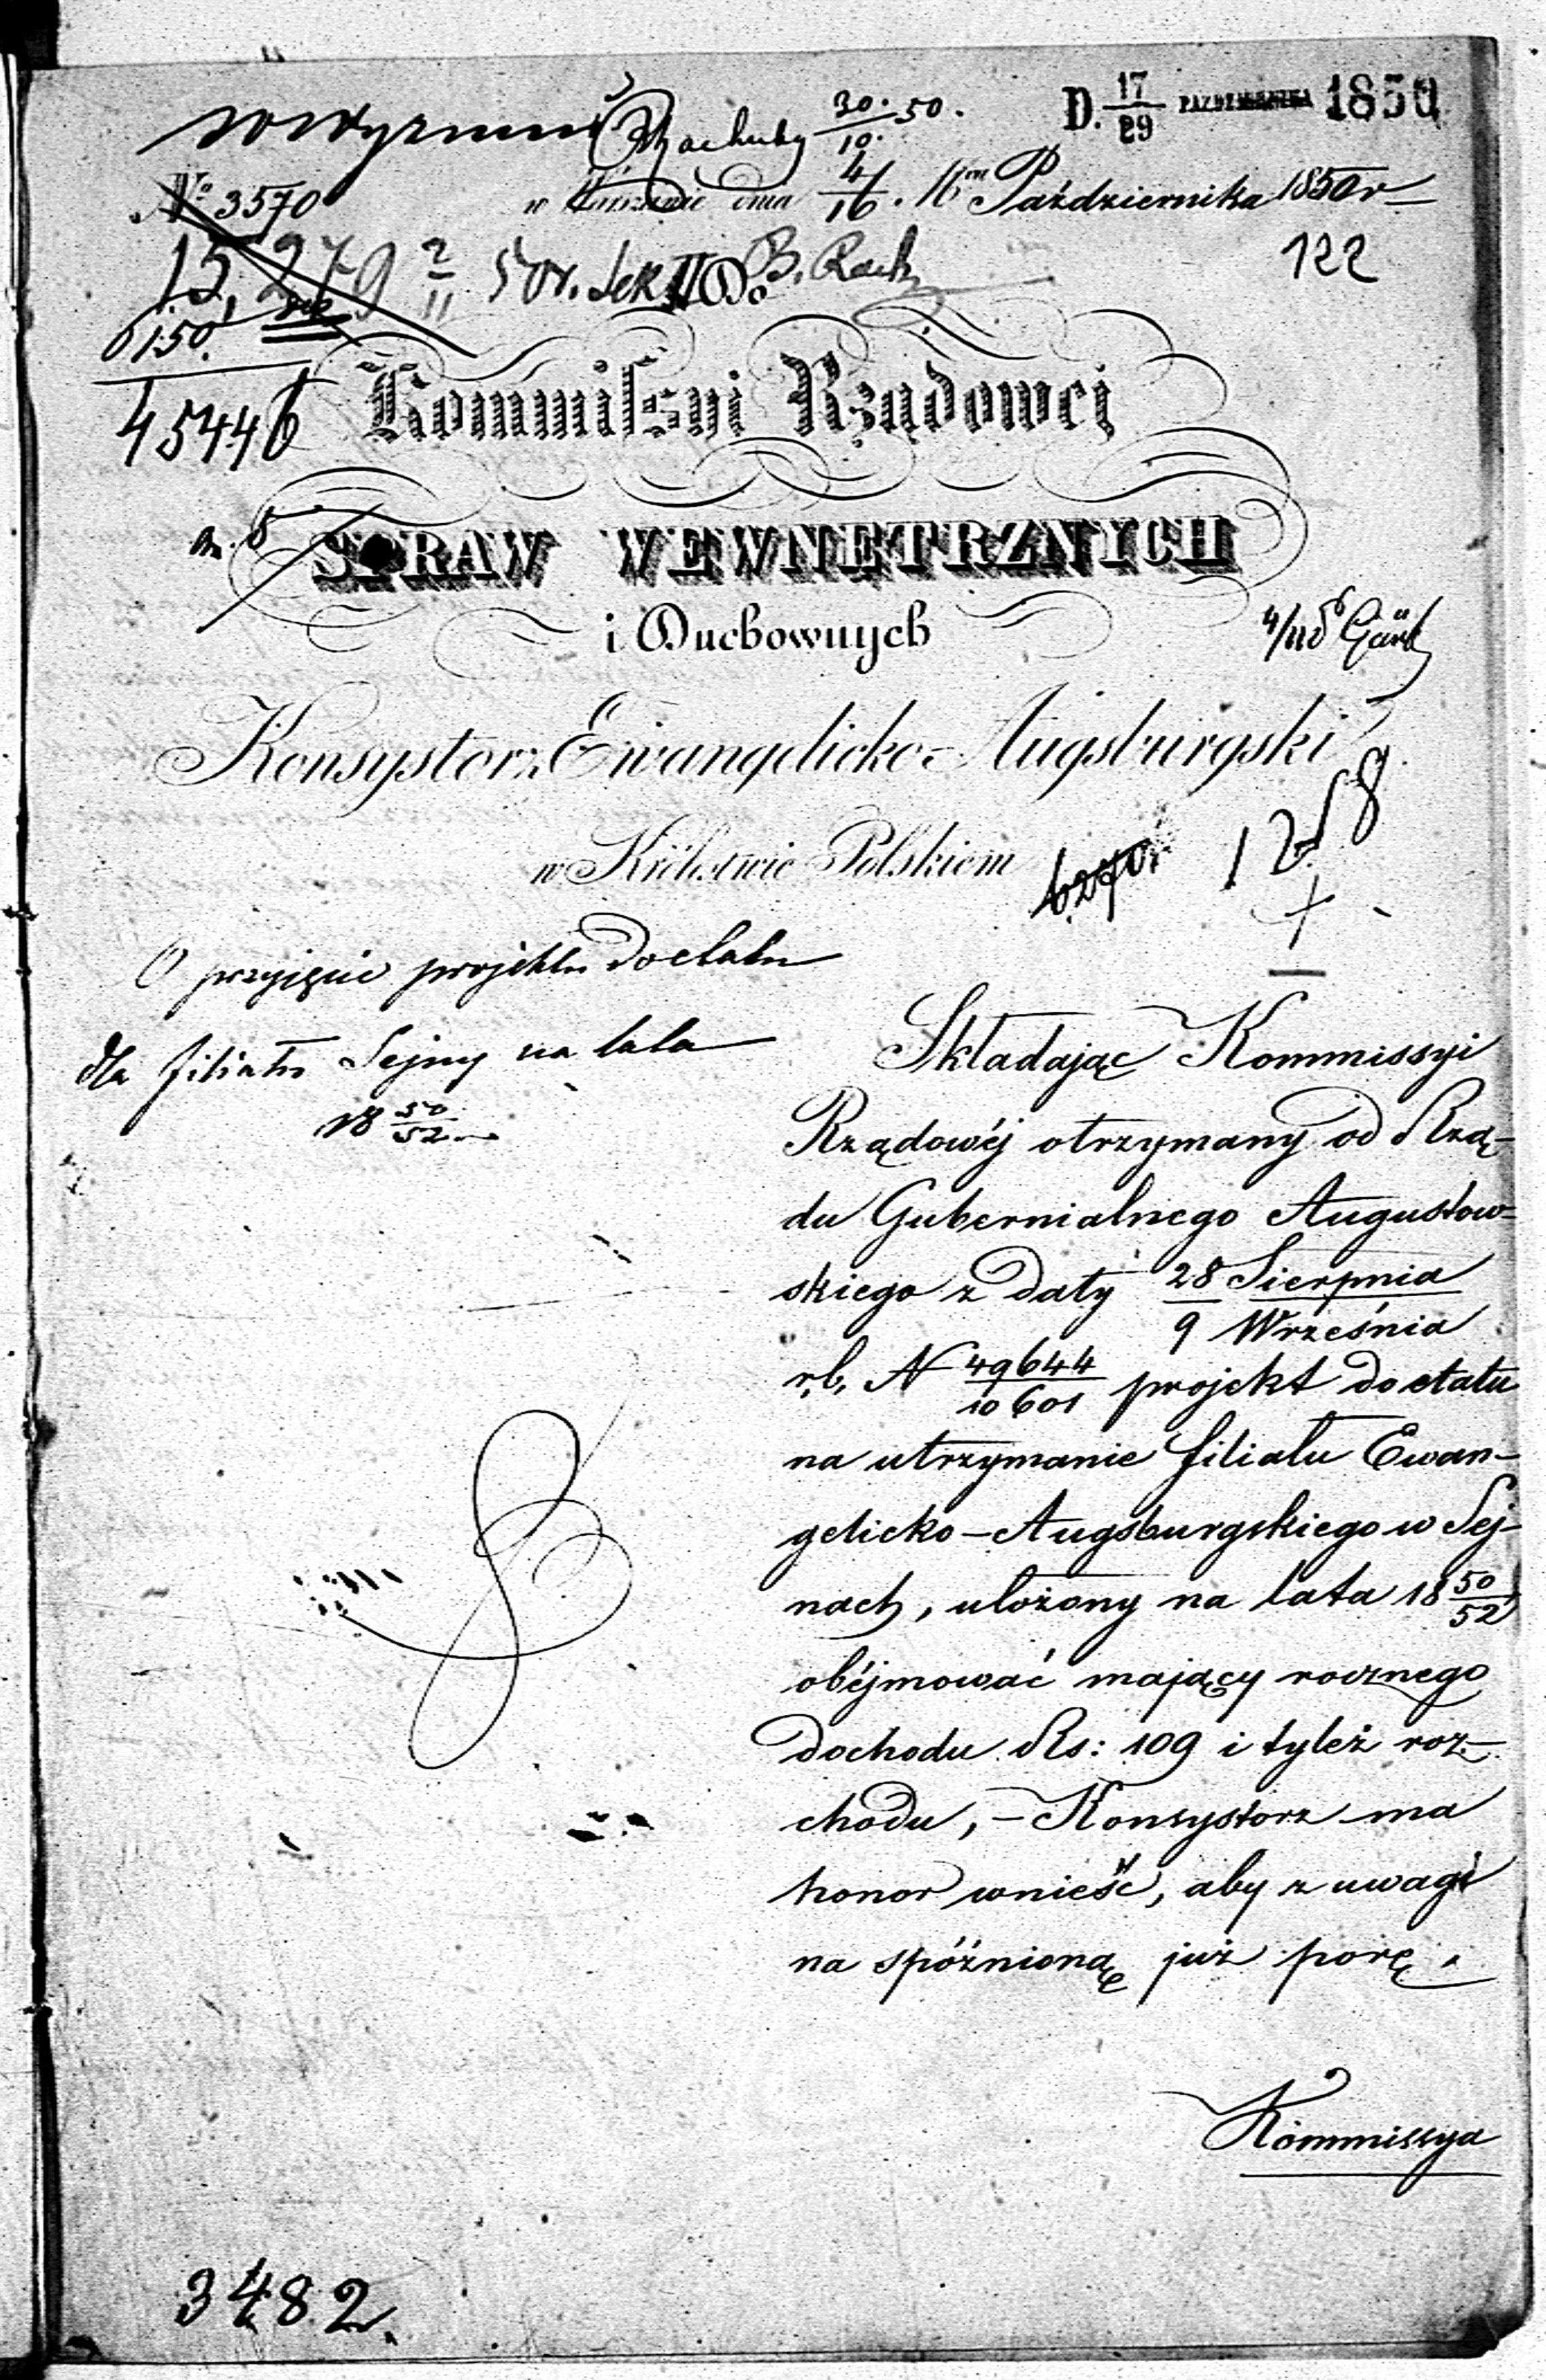 Rachuby 30/10. 50.
D. 17/29 PAZDZIERNIKA 1850
No 3570
w Warszawie dnia 4/16. 16m Października 1850 r
122
15,279 2/11 50 r. Sek II Do B. Rach
150
45446
Kommissyi Rządowej
SPRAW WEWNĘTRZNYCH
i Duchownych
Konsystorz Ewangelicko-Augsburgski
w Królestwie Polskiem
1258
O przyjęcie projektu do etatu
dla filiału Sejny na lata
18 50/52
Składając Kommissyi
Rządowéj otrzymany od Rzą-
du Gubernialnego Augustow-
skiego z daty 28 Sierpnia / 9 Września
r.b. N 49644/10601 projekt do etatu
na utrzymanie filiału Ewan-
gelicko-Augsburgskiego w Sej-
nach, ułożony na lata 18 50/52
obéjmować mający rocznego
dochodu Rs: 109 i tyleż roz-
chodu, – Konsystorz ma
honor wnieść, aby z uwagi
na spóźnioną już porę
Kommissya
3482.